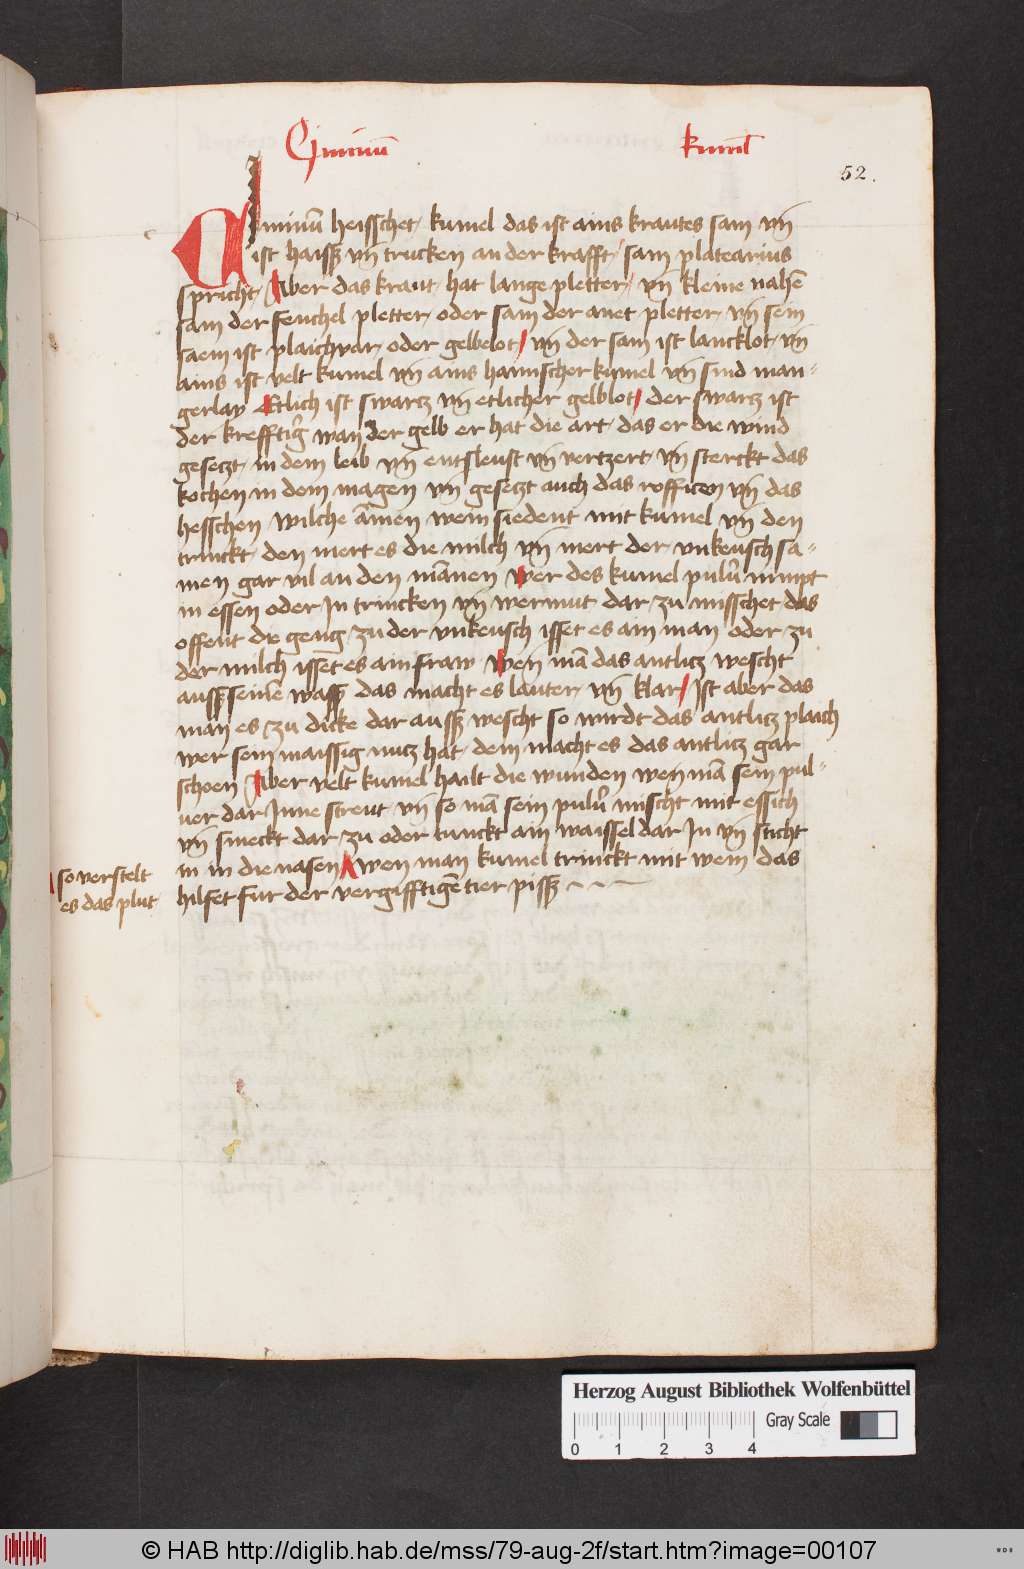 Ciminū kumel
52.
Ciminū heisschet kumel das ist ains krautes sam vn̄
ist haiss vn̄ trucken an der krafft / sam platearius
spricht / Aber das kraut hat lange pletter / vn̄ kleine nahē
sam der fenchel pletter oder sam der anet pletter vn̄ sein
saem ist plaichvar oder gelbelot / vn̄ der sam ist lancklot vn̄
ains ist velt kumel vn̄ ains haimscher kumel vn̄ sind man=
gerlay Etlich ist swartz vn̄ etlicher gelblot / der swartz ist
der krefftig̉ wan der gelb er hat die art das er die wind
gesetzt in dem leib vn̄ entsleust vn̄ vertzert vn̄ sterckt das
kochen in dem magen vn̄ gesetzt auch das roffitzen vn̄ das
hesschen wilche ām̄en wein siedent mit kumel vn̄ den
trinckt den mert es die milch vn̄ mert der vnkeusch sa=
men gar vil an den mānen Wer des kumel pulủ nimpt
in essen oder In trincken vn̄ wermut dar zu misschet das
offent die geng zu der vnkeusch isset es ain man oder zu
der milch isset es ain fraw Wen mā das antlitz wescht
auss seinē wass̉ das macht es lauter vn̄ klar / Ist aber das
man es zu dicke dar auss wescht so wirdt das antlitz plaich
wer sein maissig nutz hat dem macht es das antlitz gar
schoen Aber velt kumel hailt die wunden wen mā sein pul=
uer dar Inne streut vn̄ so mā sein pulủ mischt mit essich
vn̄ smeckt dar zu oder tunckt ain waissel dar In vn̄ sticht
in in die nasen Λ wen man kumel trinckt mit wein das
hilfet fur der vergifftigē tier piss
Λ so verstelt
es das plut
Herzog August Bibliothek Wolfenbüttel
Gray Scale
0 1 2 3 4
© HAB http://diglib.hab.de/mss/79-aug-2f/start.htm?image=00107